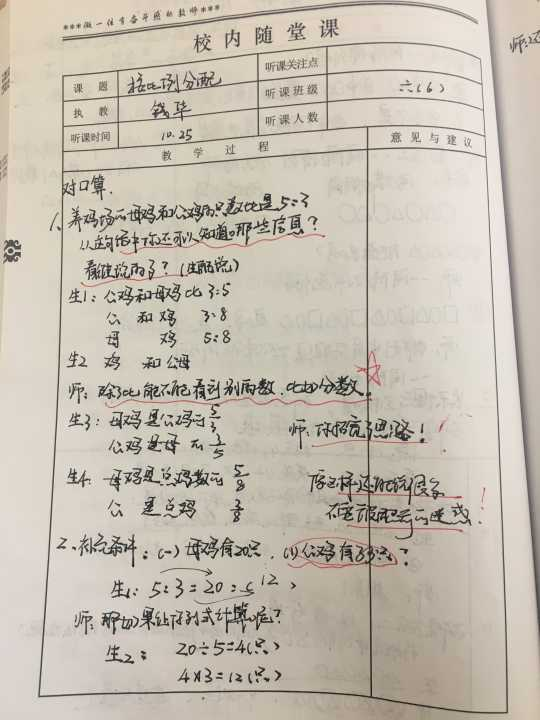 ***做一位有备而思的教师***
校内随堂课
课题 按比例分配 听课关注点
听课班级 六(6)
执教 钱华
听课时间 10.25 听课人数
教学过程 意见与建议
对口算.
1、养鸡场的母鸡和公鸡的只数比是5:3
从这句话中你还可以知道哪些信息?
看谁说的多?
生1: 公鸡和母鸡比 3:5
公 和 鸡 3:8
母 鸡 5:8
生2 鸡 和公母
师: 除了比能不能看到别的数,比如分数。
生3: 母鸡是公鸡的 5/3
公鸡是母鸡的 3/5
师: 你拓宽了思路!
生4: 母鸡是总鸡数的 5/8
公 是总鸡 3/8
2、补充条件: (1) 母鸡有20只. (2) 公鸡有33只?
生1: 5:3=20:12
师: 那如果给你列式计算呢?
生2: 20÷5=4(只)
4×3=12(只)